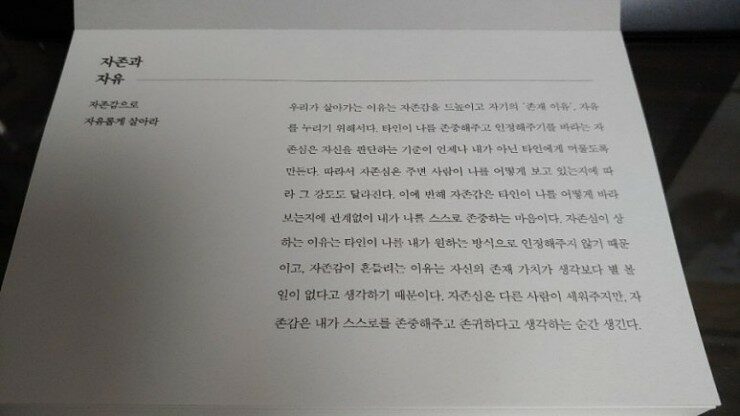 자존과
자유
자존감으로
자유롭게 살아라
우리가 살아가는 이유는 자존감을 드높이고 자기의 '존재 이유', 자유
를 누리기 위해서다. 타인이 나를 존중해주고 인정해주기를 바라는 자
존심은 자신을 판단하는 기준이 언제나 내가 아닌 타인에게 머물도록
만든다. 따라서 자존심은 주변 사람이 나를 어떻게 보고 있는지에 따
라 그 강도도 달라진다. 이에 반해 자존감은 타인이 나를 어떻게 바라
보는지에 관계없이 내가 나를 스스로 존중하는 마음이다. 자존심이 상
하는 이유는 타인이 나를 내가 원하는 방식으로 인정해주지 않기 때문
이고, 자존감이 흔들리는 이유는 자신의 존재 가치가 생각보다 별 볼
일이 없다고 생각하기 때문이다. 자존심은 다른 사람이 세워주지만, 자
존감은 내가 스스로를 존중해주고 존귀하다고 생각하는 순간 생긴다.